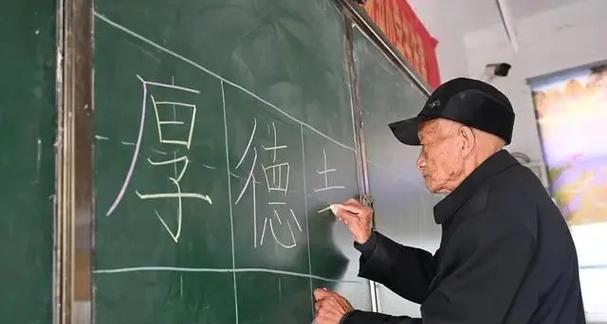 厚德土